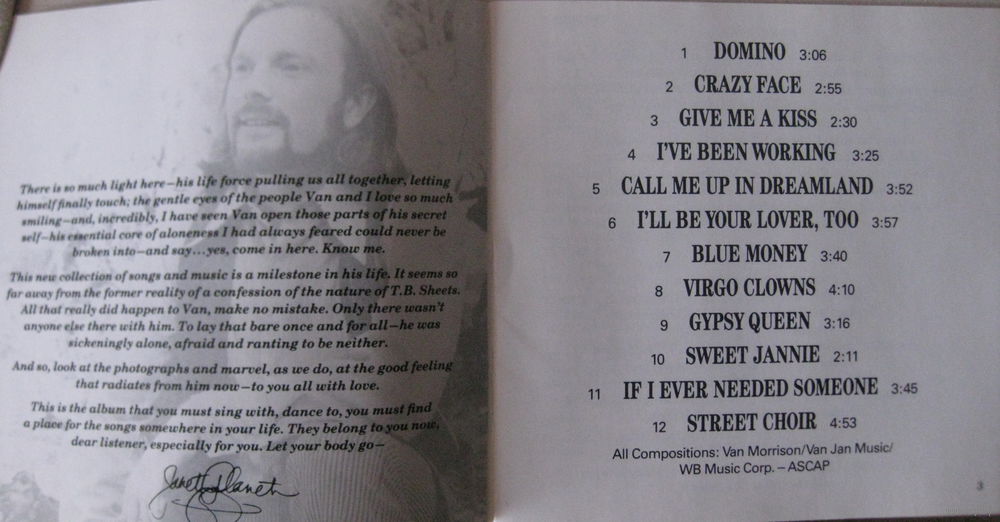 There is so much light here—his life force pulling us all together, letting
himself finally touch; the gentle eyes of the people Van and I love so much
smiling—and, incredibly, I have seen Van open those parts of his secret
self—his essential core of aloneness I had always feared could never be
broken into—and say...yes, come in here. Know me.
This new collection of songs and music is a milestone in his life. It seems so
far away from the former reality of a confession of the nature of T.B. Sheets.
All that really did happen to Van, make no mistake. Only there wasn't
anyone else there with him. To lay that bare once and for all—he was
sickeningly alone, afraid and ranting to be neither.
And so, look at the photographs and marvel, as we do, at the good feeling
that radiates from him now—to you all with love.
This is the album that you must sing with, dance to, you must find
a place for the songs somewhere in your life. They belong to you now,
dear listener, especially for you. Let your body go—
Janet Planet
1 DOMINO 3:06
2 CRAZY FACE 2:55
3 GIVE ME A KISS 2:30
4 I'VE BEEN WORKING 3:25
5 CALL ME UP IN DREAMLAND 3:52
6 I'LL BE YOUR LOVER, TOO 3:57
7 BLUE MONEY 3:40
8 VIRGO CLOWNS 4:10
9 GYPSY QUEEN 3:16
10 SWEET JANNIE 2:11
11 IF I EVER NEEDED SOMEONE 3:45
12 STREET CHOIR 4:53
All Compositions: Van Morrison/Van Jan Music/
WB Music Corp. – ASCAP
3